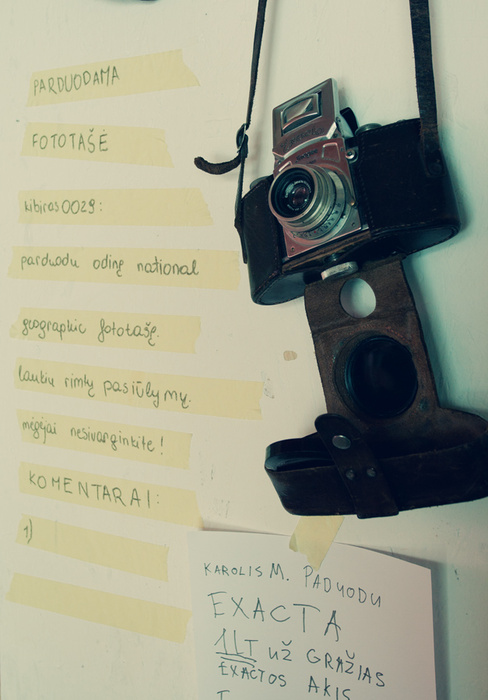 PARDUODAMA
FOTOTAŠĖ
kibiras0029:
parduodu odinę national
geographic fototašę.
laukiu rimtų pasiūlymų.
mėgėjai nesivarginkite!
KOMENTARAI:
1)
KAROLIS M. PADUODU
EXACTA
1LT UŽ GRAŽIAS
EXACTOS AKIS